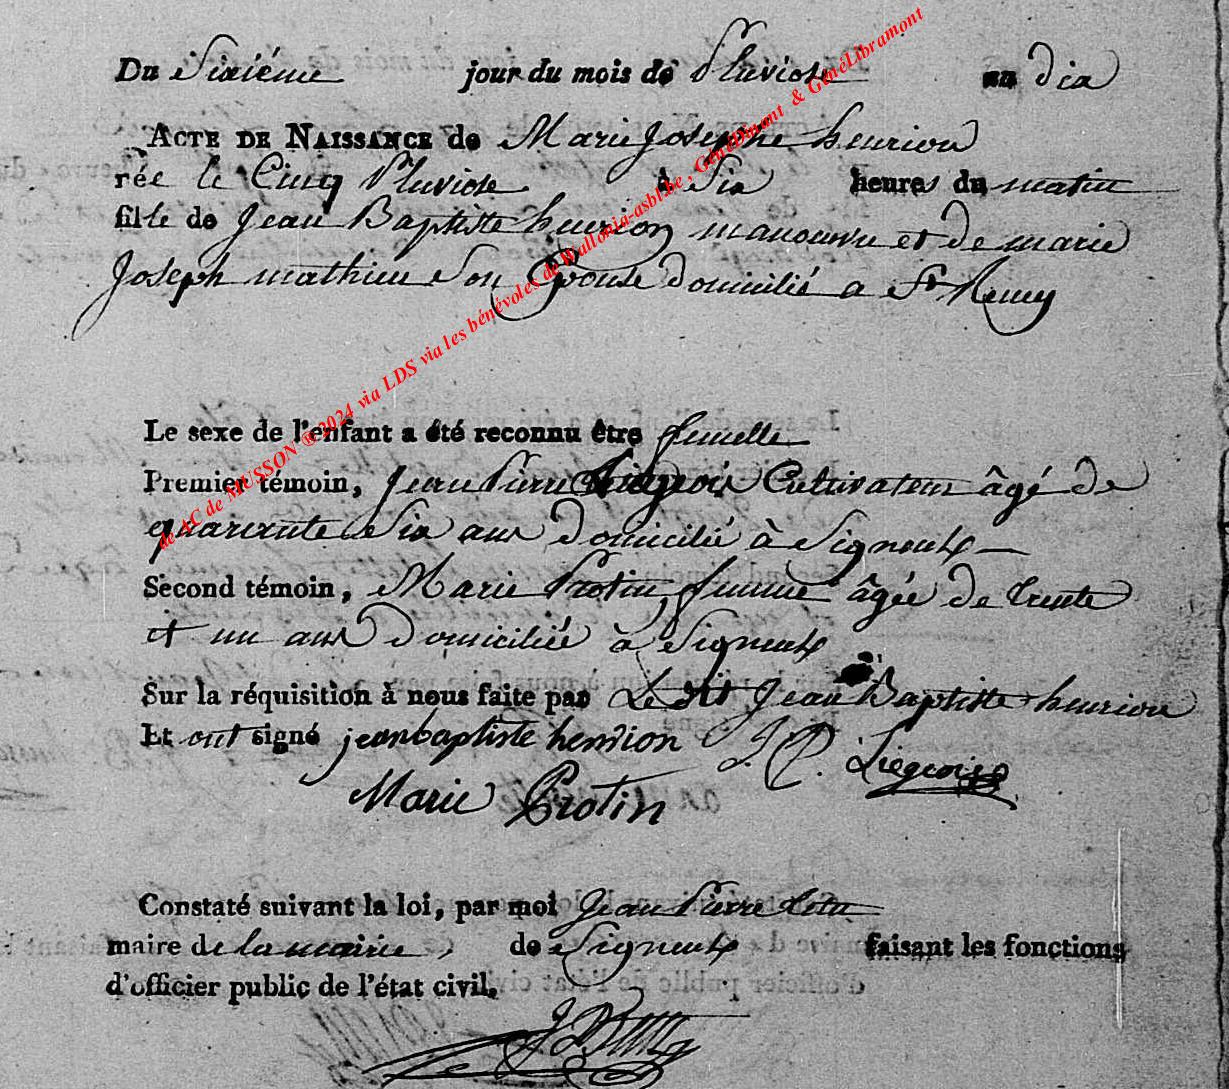 Du Sixiéme jour du mois de Pluviose an dix
ACTE DE NAISSANCE de Marie Josephe henrion
née le Cinq Pluviose à Six heures du matin
fille de Jean Baptiste henrion manouvre et de marie
Joseph mathieu Son Epouse domicilié a St Remy
Le sexe de l'enfant a été reconnu être femelle
Premier témoin, Jean Pierre Liégeois Cultivateur âgé de
quarante Six ans domicilié à Signeulx
Second témoin, Marie Protin femme âgée de trente
et un ans domiciliée à Signeulx
Sur la réquisition à nous faite par Le dit Jean Baptiste henrion
Et ont signé jean baptiste henrion J. P. Liegeois
Marie Protin
Constaté suivant la loi, par moi Jean Pierre
maire de la mairie de Signeulx faisant les fonctions
d'officier public de l'état civil.
de AC de MUSSON ® 2024 via LDS via les bénévoles de Wallonia-asbl.be , GénéDinant & GénéLibramont